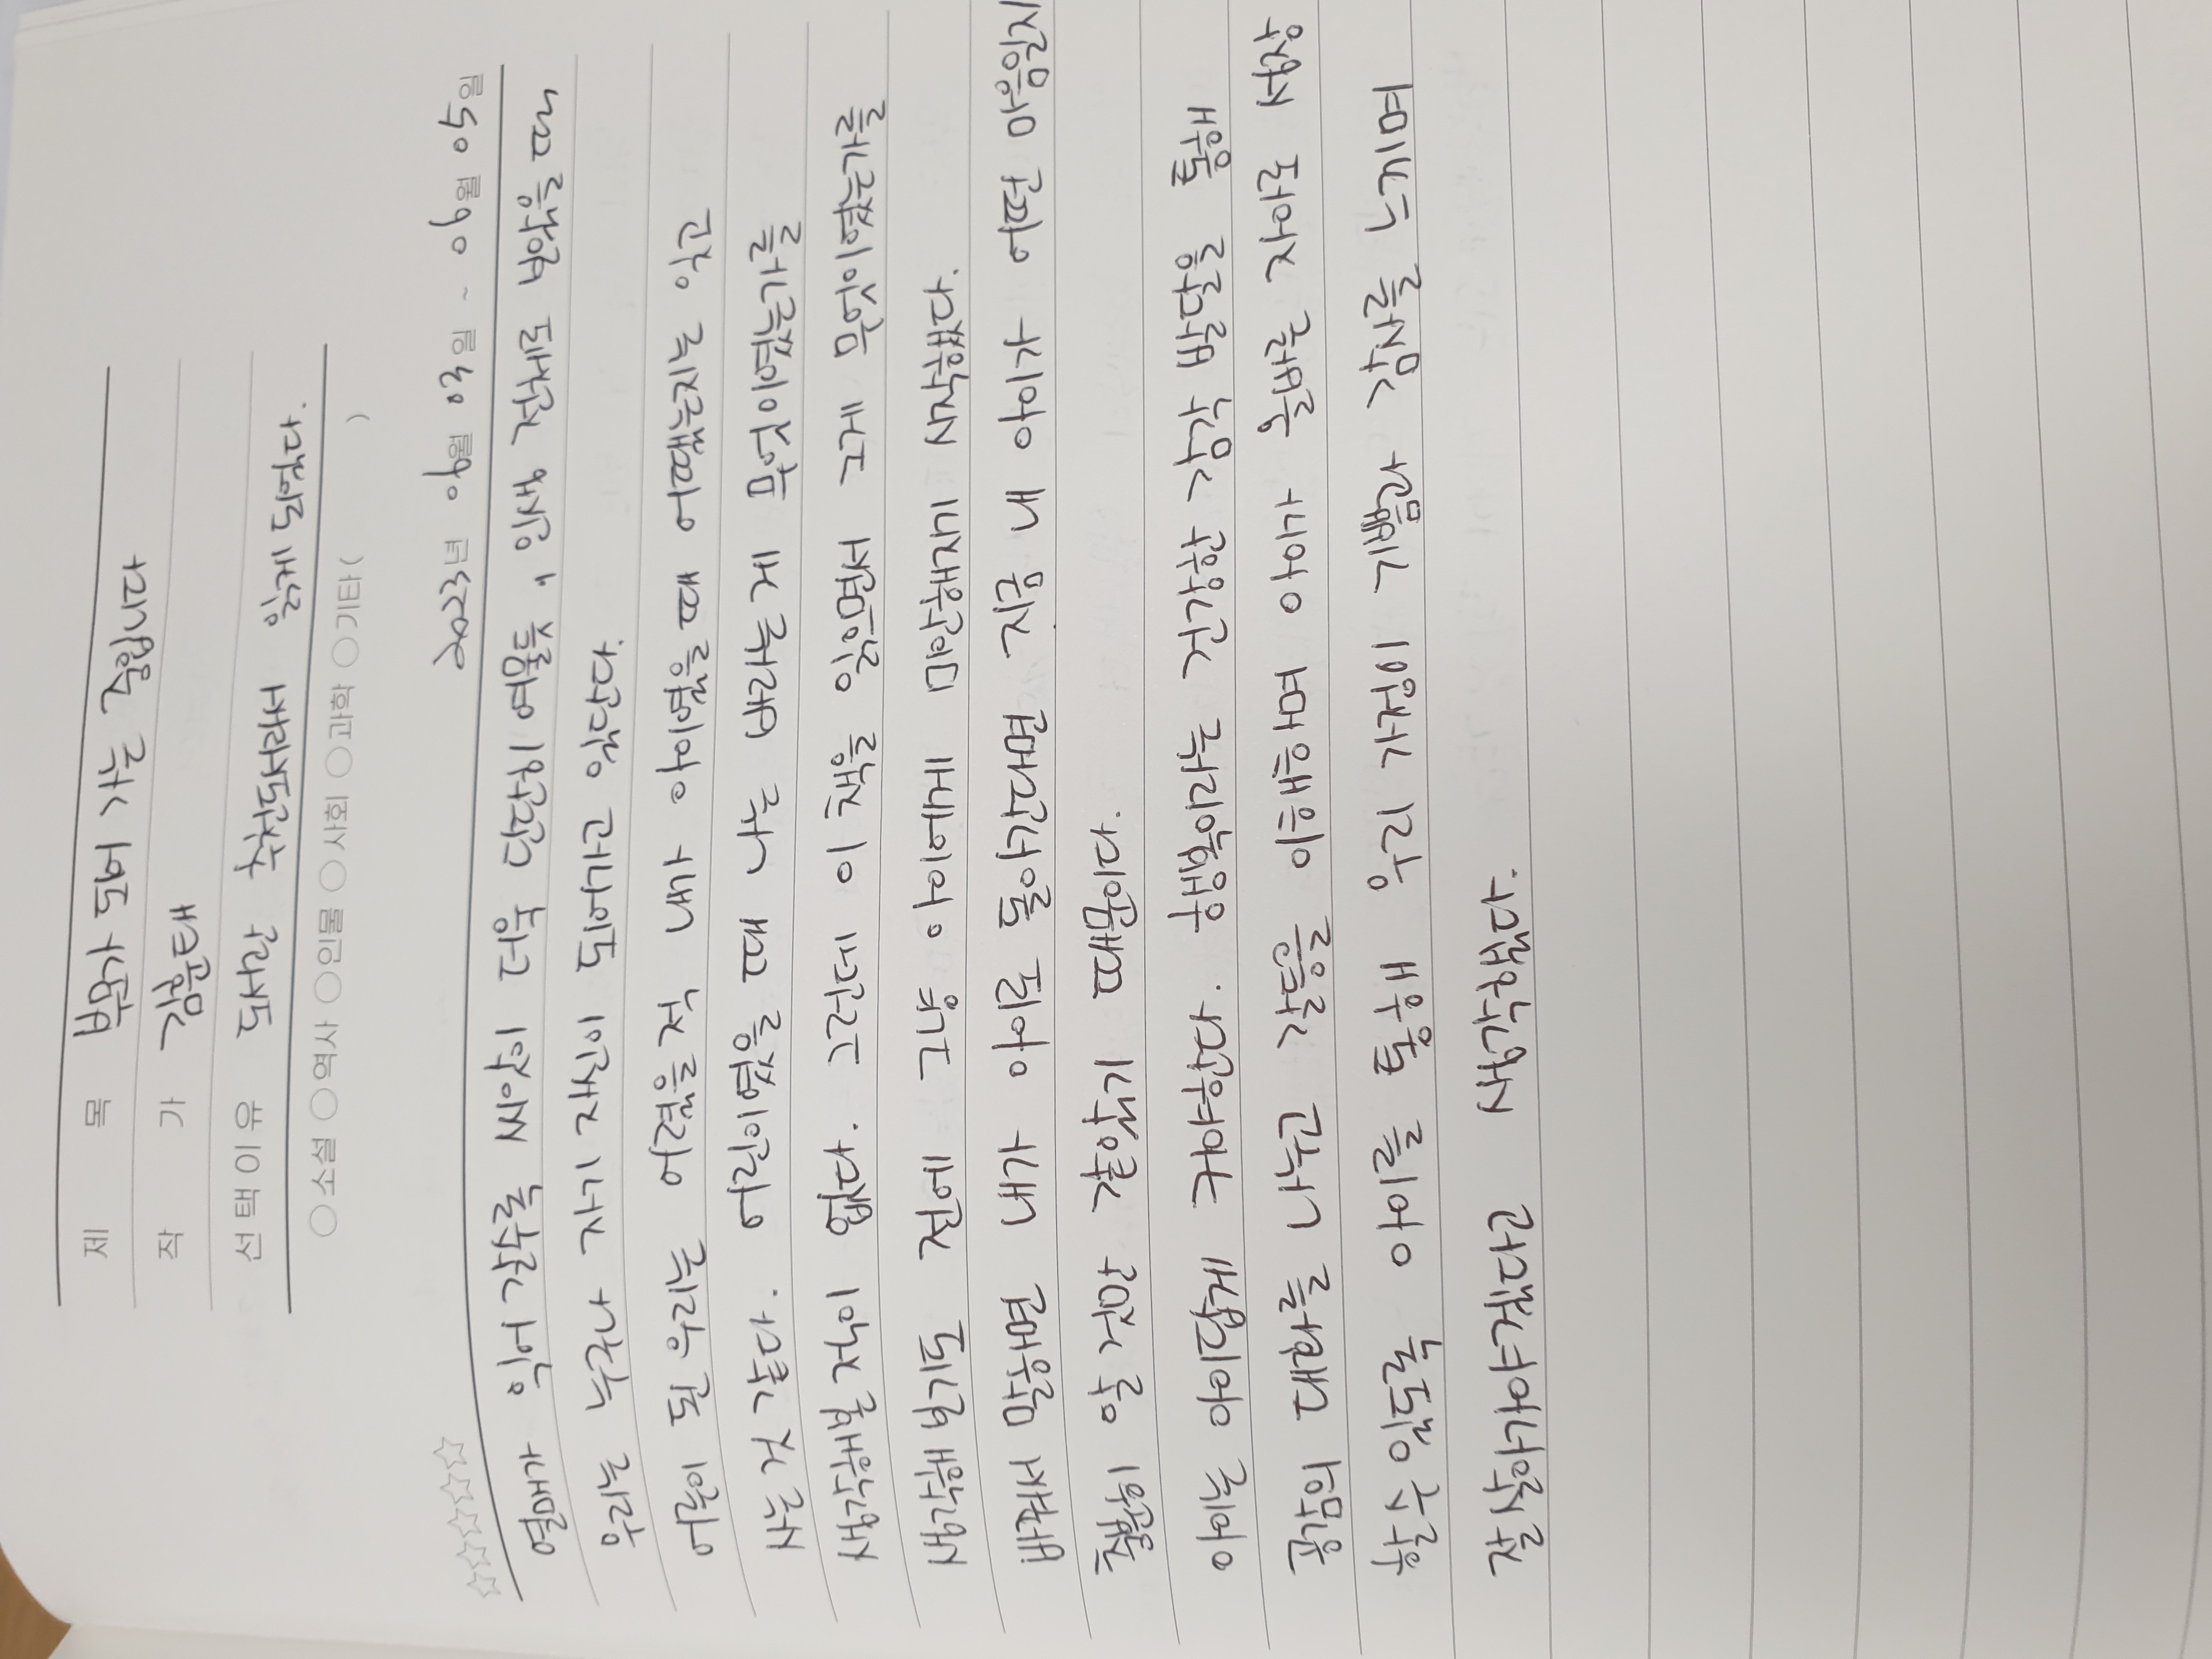 제 목 부모가 되어 가는 중입니다
작 가 김훈태
선택이유 도서관 추천도서라서 읽게 되었다.
○소설 ○역사 ○인물 ○사회 ○과학 ○기타( )
☆☆☆☆☆ 2023년 06월 03일 ~ 06월 05일
열매가 익어 갈수록 씨앗이 더욱 단단히 여물듯, 인생 전체로 보았을 때
우리는 누구나 자기 자신이 되어가고 있단다.
어른이 된 우리는 어렸을 적 내가 아이였을 때 어땠는지는 잊고
사는 것 같다. 어린이였을 때 나는 바라는 게 무엇이였는가를
생각해본 적이 없다. 그런데 이 책을 읽으면서 그게 무엇이였는가를
생각해 보기도 전에 그냥 아이에게 미안해지기 시작했다.
바꿔서 말하면 내가 아이로 돌아간다면 지금 내 아이가 어떤 마음일지
충분히 알 것만 같았기 때문이다.
아이는 아이답게 커야한다. 행복이라는 건강한 감각 발달을 통해
공감의 대화를 나누고 갈등을 이해하며 아이가 올바른 자아로 성장
할 수 있도록 아이를 통해 우리 가정이 기쁨과 감사를 느끼며
잘 살아가야겠다고 생각했다.